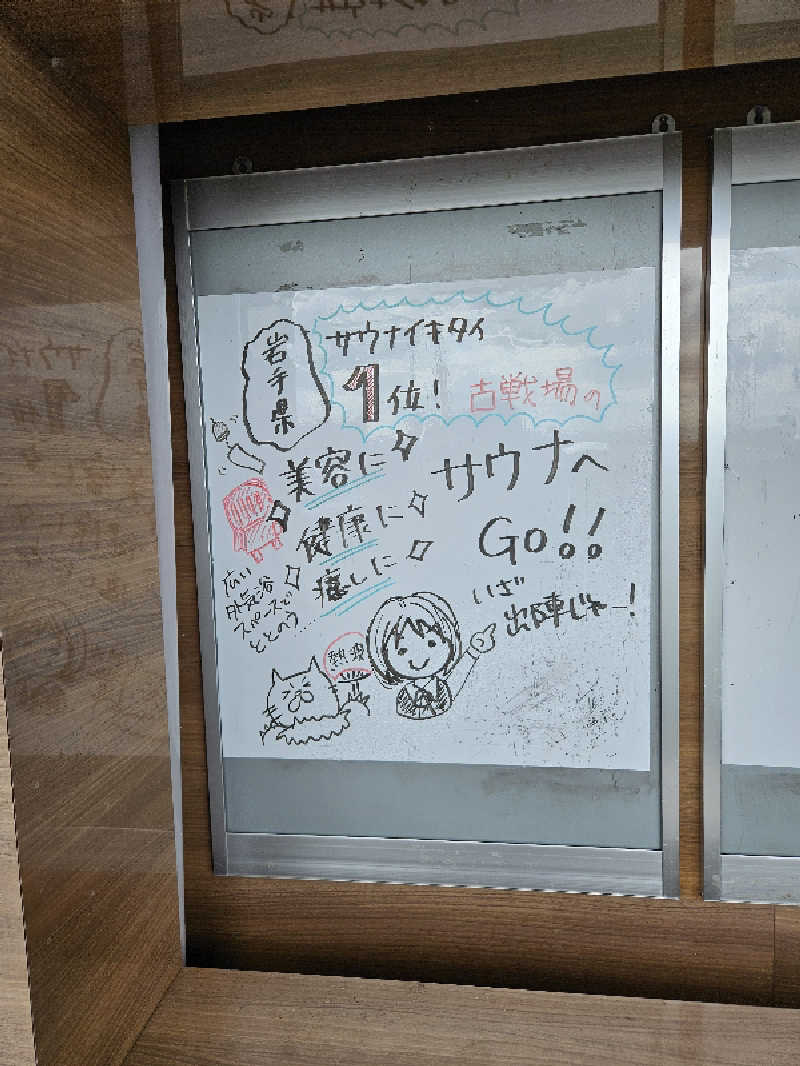 岩手県
サウナイキタイ
1位!
古戦場の
サウナへ
Go!!
美容に
健康に
癒しに
広い
外気浴
スペースで
ととのう……
いざ
出陣じゃー!
熱波